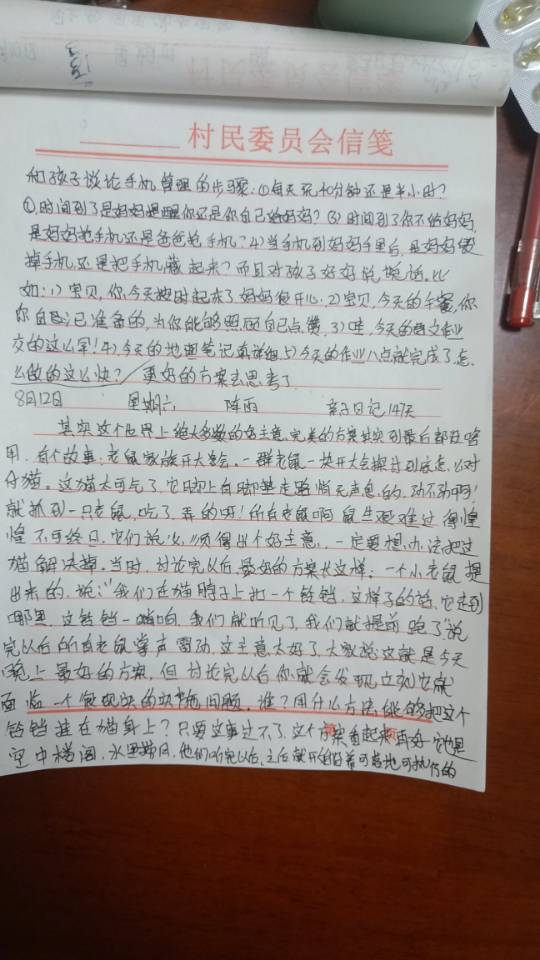 村民委员会信笺
和孩子谈论手机管理的步骤:①每天玩40分钟还是半小时?
②,时间到了是妈妈提醒你还是你自己给妈妈?③时间到了你不给妈妈,
是妈妈抢手机还是爸爸抢手机?4)当手机到妈妈手里后,是妈妈毁
掉手机还是把手机藏起来?而且对孩子好好说话。比
如:1)宝贝,你今天按时起床了妈妈很开心.2)宝贝,今天的午餐,你
你自己准备的,为你能够照顾自己点赞,3)哇,今天的语文作业
交的这么早!4)今天的地理笔记真详细.5)今天的作业八点就完成了怎
么做的这么快?/更好的方案去思考了
8月12日 星期六 阵雨 亲子日记147天
其实这个世界上绝大多数的好主意、完美的方案其实到最后都没啥
用,有个故事:老鼠家族开大会,一群老鼠一块开大会探讨到底怎么对
付猫。这猫太可气了,它脚上有脚垫走路悄无声息的,动不动啊!
就抓到一只老鼠,吃了,弄的呀!所有老鼠啊鼠生艰难过得惶
惶不可终日,它们说:必须得出个好主意,一定要想办法把这
猫解决掉。当时,讨论完以后,最好的方案长这样:一个小老鼠提
出来的,说:"我们在猫脖子上扣一个铃铛,这样子的话,它走到
哪里,这铃铛一响,我们就听见了,我们就提前跑了"说
完以后所有老鼠掌声雷动,这主意太好了,大家说这就是今天
晚上最好的方案,但讨论完以后你就会发现立刻它就
面临一个很现实的实施问题,谁?用什么方法能够把这个
铃铛挂在猫身上?只要这事过不了,这个方案看起来再好,它也是
空中楼阁,水里捞月,他们听完以后,之后就开始